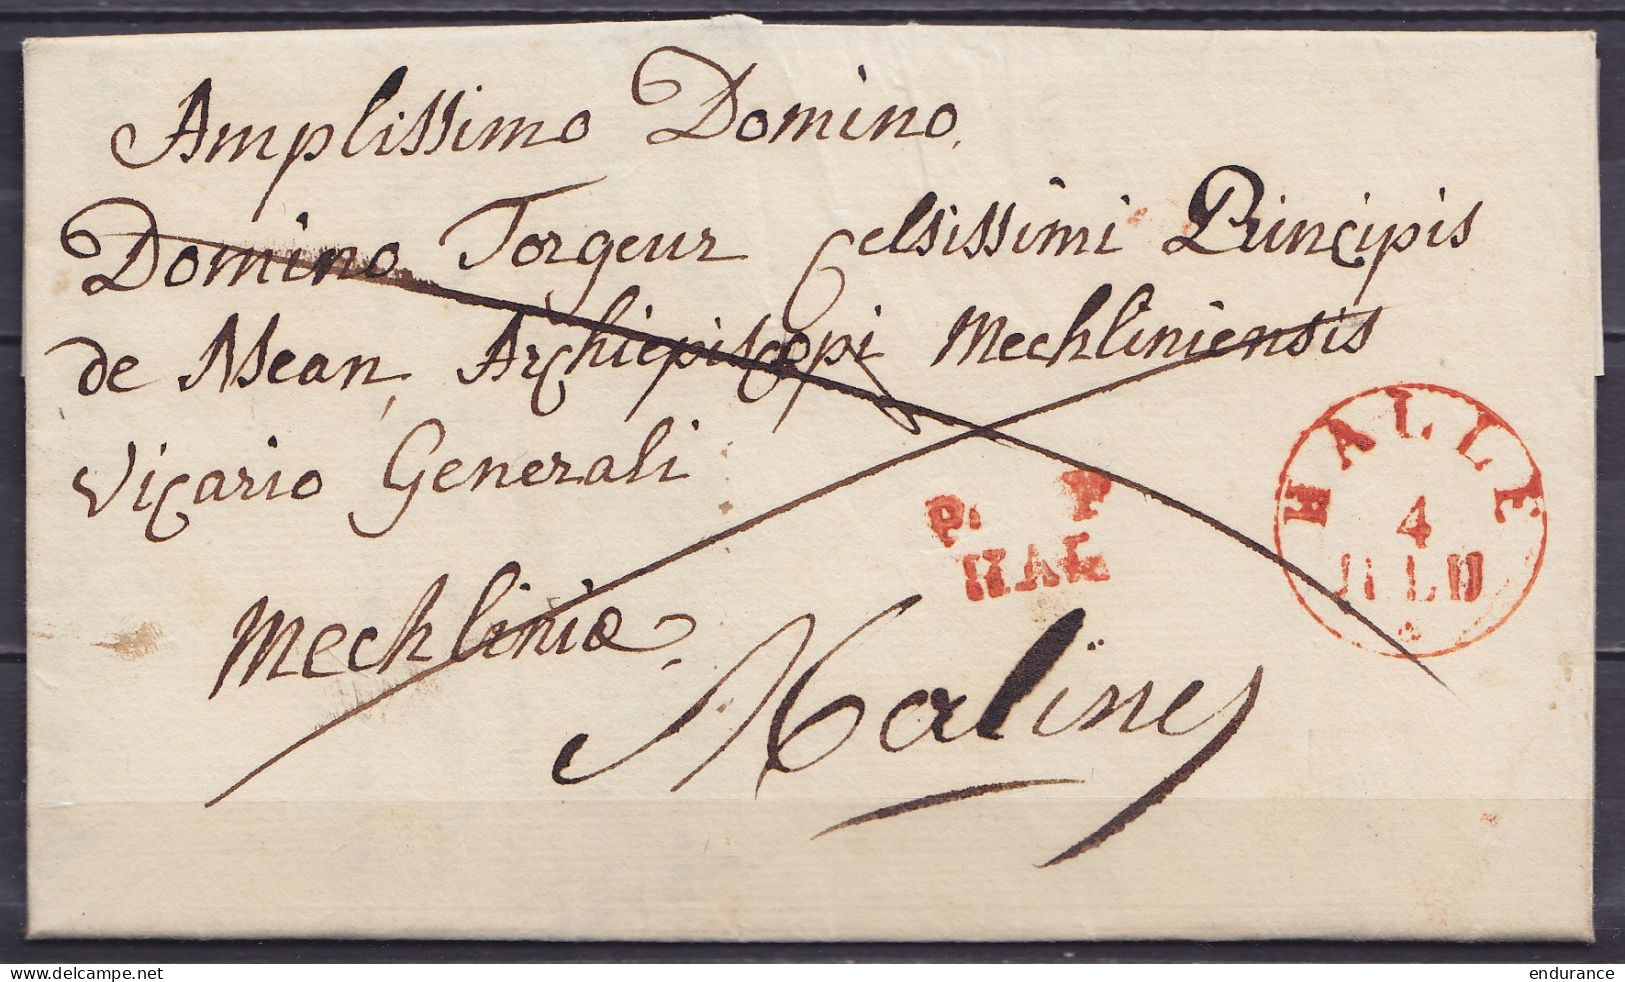 Amplissimo Domino,
Domino Forgeur Celsissimi Principis
de Mean, Archiepiscopi Mechliniensis
Vicario Generali
Mechliniæ.
Malines
P. P
HAL
HALLE
4
JULII
Delcampe.net
endurance